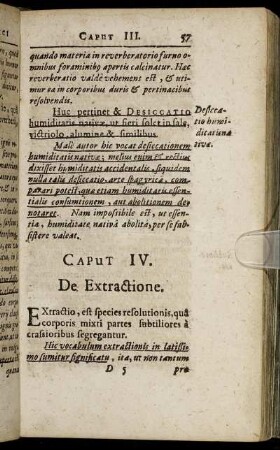 CAPUT III.
57
quando materia in reverberatorio furno o-
mnibus foraminib9 apertis calcinatur. Hæc
reverberatio valdè vehement est, & uti-
mur ea in corporibus duris & pertinacibus
resolvendis.
Huc pertinet & DESICCATIO
humiditatis nativæ, ut fieri solet in sale,
victriolo, alumine & similibus.
Desicca-
tio humi-
ditatis na-
tivæ.
Malè autor hic vocat desiccationem
humiditatis nativæ, melius enim & rectius
dixisset humiditatis accidentalis, siquidem
nulla talis desiccatio, arte spagyricâ, com-
parari potest, quæ etiam humiditatis essen-
tialis consumtionem, aut abolitionem de-
notaret. Nam impossibile est, ut essen-
tia, humiditate nativâ abolitâ, per se sub-
sistere valeat.
CAPUT IV.
De Extractione.
EXtractio, est species resolutionis, quâ
corporis mixti partes subtiliores à
crassioribus segregantur.
Hic vocabulum extractionis in latissi-
mo sumitur significatu, ita, ut non tantum
D 5
pro